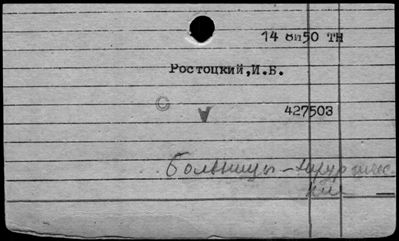 14 8и50 тн
Ростоцкий,И.Б.
427503
больницы - хирургичес
кие